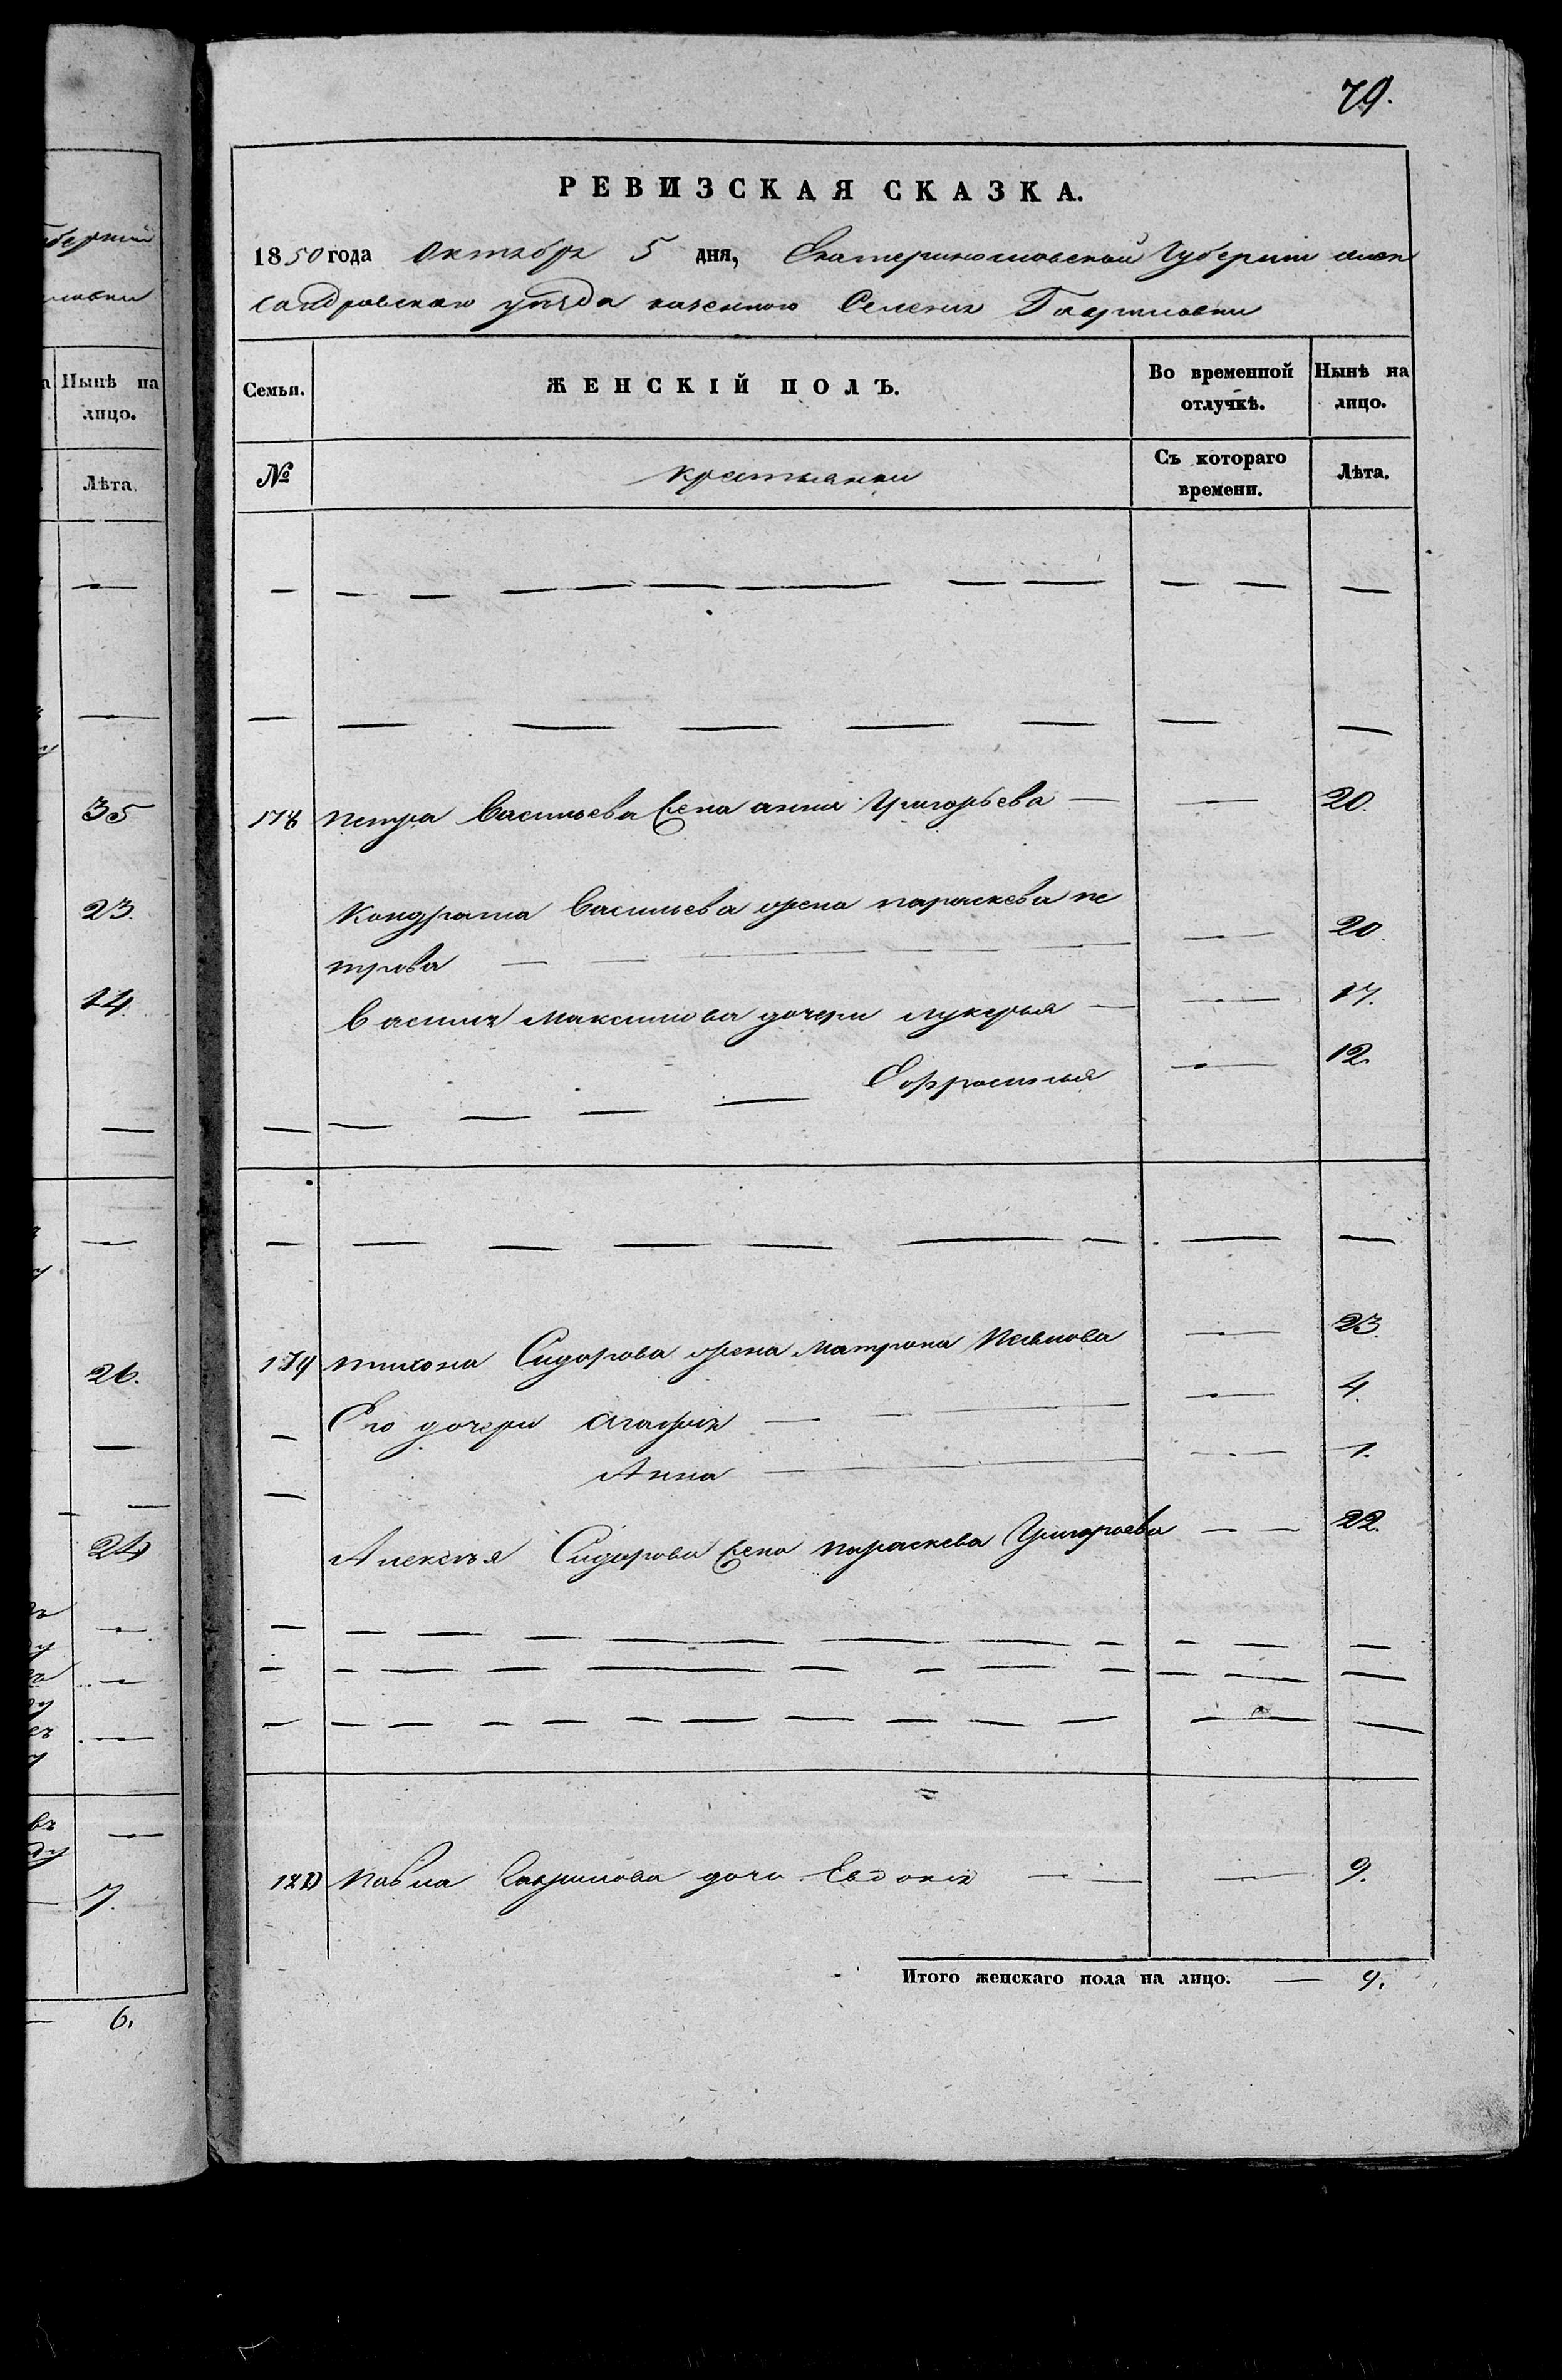 губерніи
ловки
Нынѣ на
лицо.
Лѣта.
35
23.
14.
26.
24
7.
6.
79.
РЕВИЗСКАЯ СКАЗКА.
1850 года Октября 5 дня, Екатеринославской Губерніи алек
сандровскаго уѣзда казенного Селения Гавриловки
Семьи. ЖЕНСКІЙ ПОЛЪ. Во временной отлучкѣ. Нынѣ на лицо.
№ крестьянки Съ котораго времени. Лѣта.
178 петра Васильева жена анна Григорьева — — 20.
Кондрата Васильева жена параскева пе
трова — — — — 20.
Василия Максимова дочери лукерья — — 17.
Ефросинья — 12.
179 тихона Сидорова жена Матрона Павлова — 23.
Его дочери Агафия — — — 4.
Анна — — 1.
Алексея Сидорова жена параскева Григорьева — — 22.
180 Павла Гаврилова дочь Евдокия — — 9.
Итого женскаго пола на лицо. — 9.